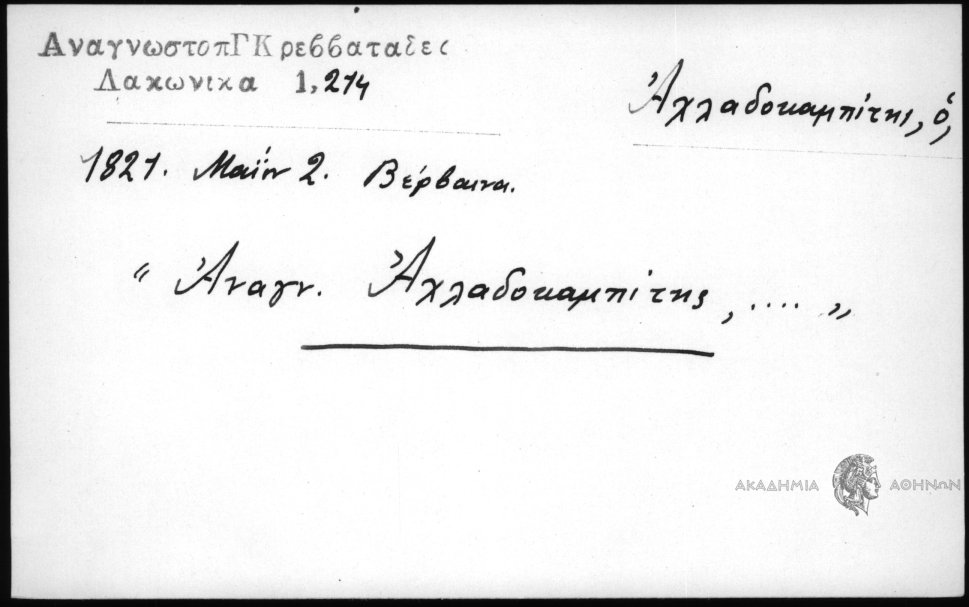 ΑναγνωστοπΓΚρεββαταδες
Λακωνικα 1,214
Ἀχλαδοκαμπίτης, ὁ,
1821. Μαΐου 2. Βέρβαινα.
“ Ἀναγν. Ἀχλαδοκαμπίτης, .... „
ΑΚΑΔΗΜΙΑ ΑΘΗΝΩΝ